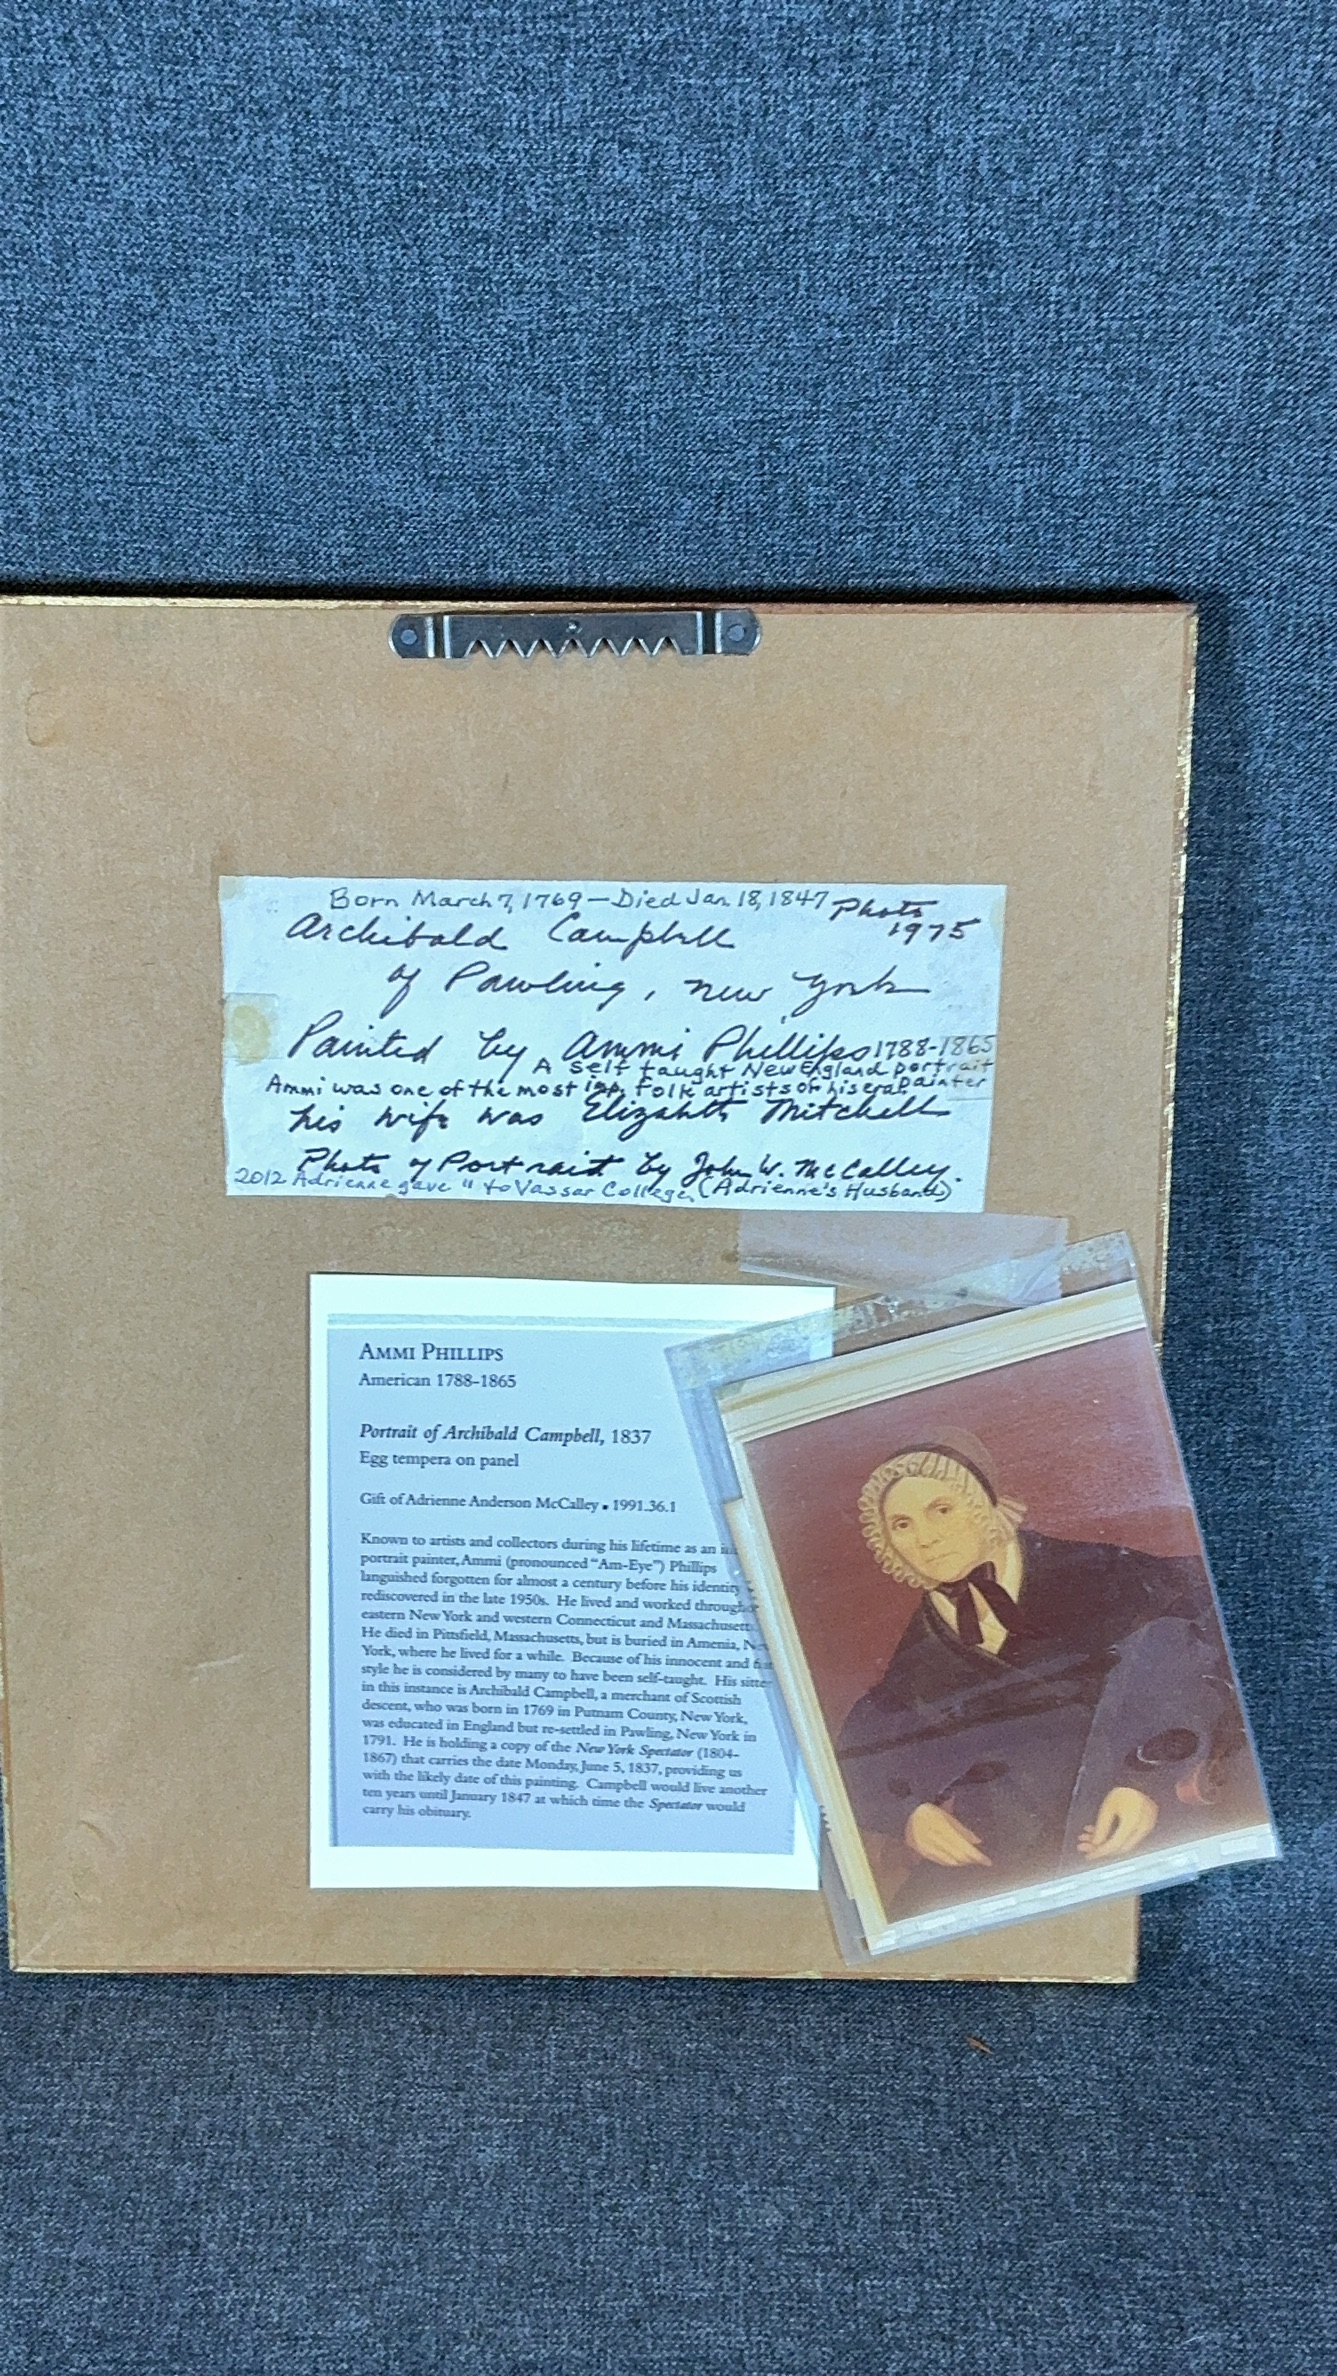 Born March 7, 1769 – Died Jan. 18, 1847
Photo
1975
Archibald Campbell
of Pawling, New York
Painted by Ammi Phillips 1788-1865
A self taught New England portrait
painter
Ammi was one of the most imp. folk artists of his era.
his wife was Elizabeth Mitchell
Photo of Portrait by John W. McCalley.
2012 Adrienne gave " to Vassar College, (Adrienne's Husband)
AMMI PHILLIPS
American 1788–1865
Portrait of Archibald Campbell, 1837
Egg tempera on panel
Gift of Adrienne Anderson McCalley • 1991.36.1
Known to artists and collectors during his lifetime as an
portrait painter, Ammi (pronounced “Am-Eye”) Phillips
languished forgotten for almost a century before his identity
rediscovered in the late 1950s. He lived and worked througho
eastern New York and western Connecticut and Massachusett
He died in Pittsfield, Massachusetts, but is buried in Amenia, N
York, where he lived for a while. Because of his innocent and
style he is considered by many to have been self-taught. His sitte
in this instance is Archibald Campbell, a merchant of Scottish
descent, who was born in 1769 in Putnam County, New York,
was educated in England but re-settled in Pawling, New York in
1791. He is holding a copy of the New York Spectator (1804–
1867) that carries the date Monday, June 5, 1837, providing us
with the likely date of this painting. Campbell would live another
ten years until January 1847 at which time the Spectator would
carry his obituary.